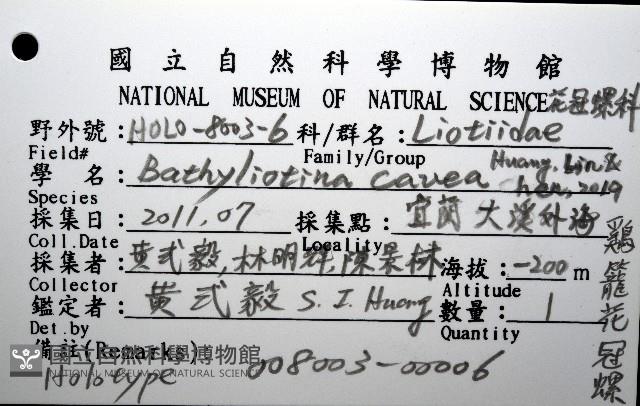 國立自然科學博物館
NATIONAL MUSEUM OF NATURAL SCIENCE 花冠螺科
野外號：HOLO-8003-6 科/群名：Liotiidae
Field# Family/Group
學 名：Bathyliotina cavea Huang, Lin &
Species 2019
採集日：2011,07 採集點：宜蘭 大溪外海
Coll.Date Locality
採集者：黃弍毅,林明輝,陳景林 海拔：-200 m
Collector Altitude
鑑定者：黃弍毅 S. I. Huang 數量：1
Det.by Quantity
備註(Remarks)
Holotype 008003-00006
雞籠花冠螺
國立自然科學博物館
NATIONAL MUSEUM OF NATURAL SCIENCE